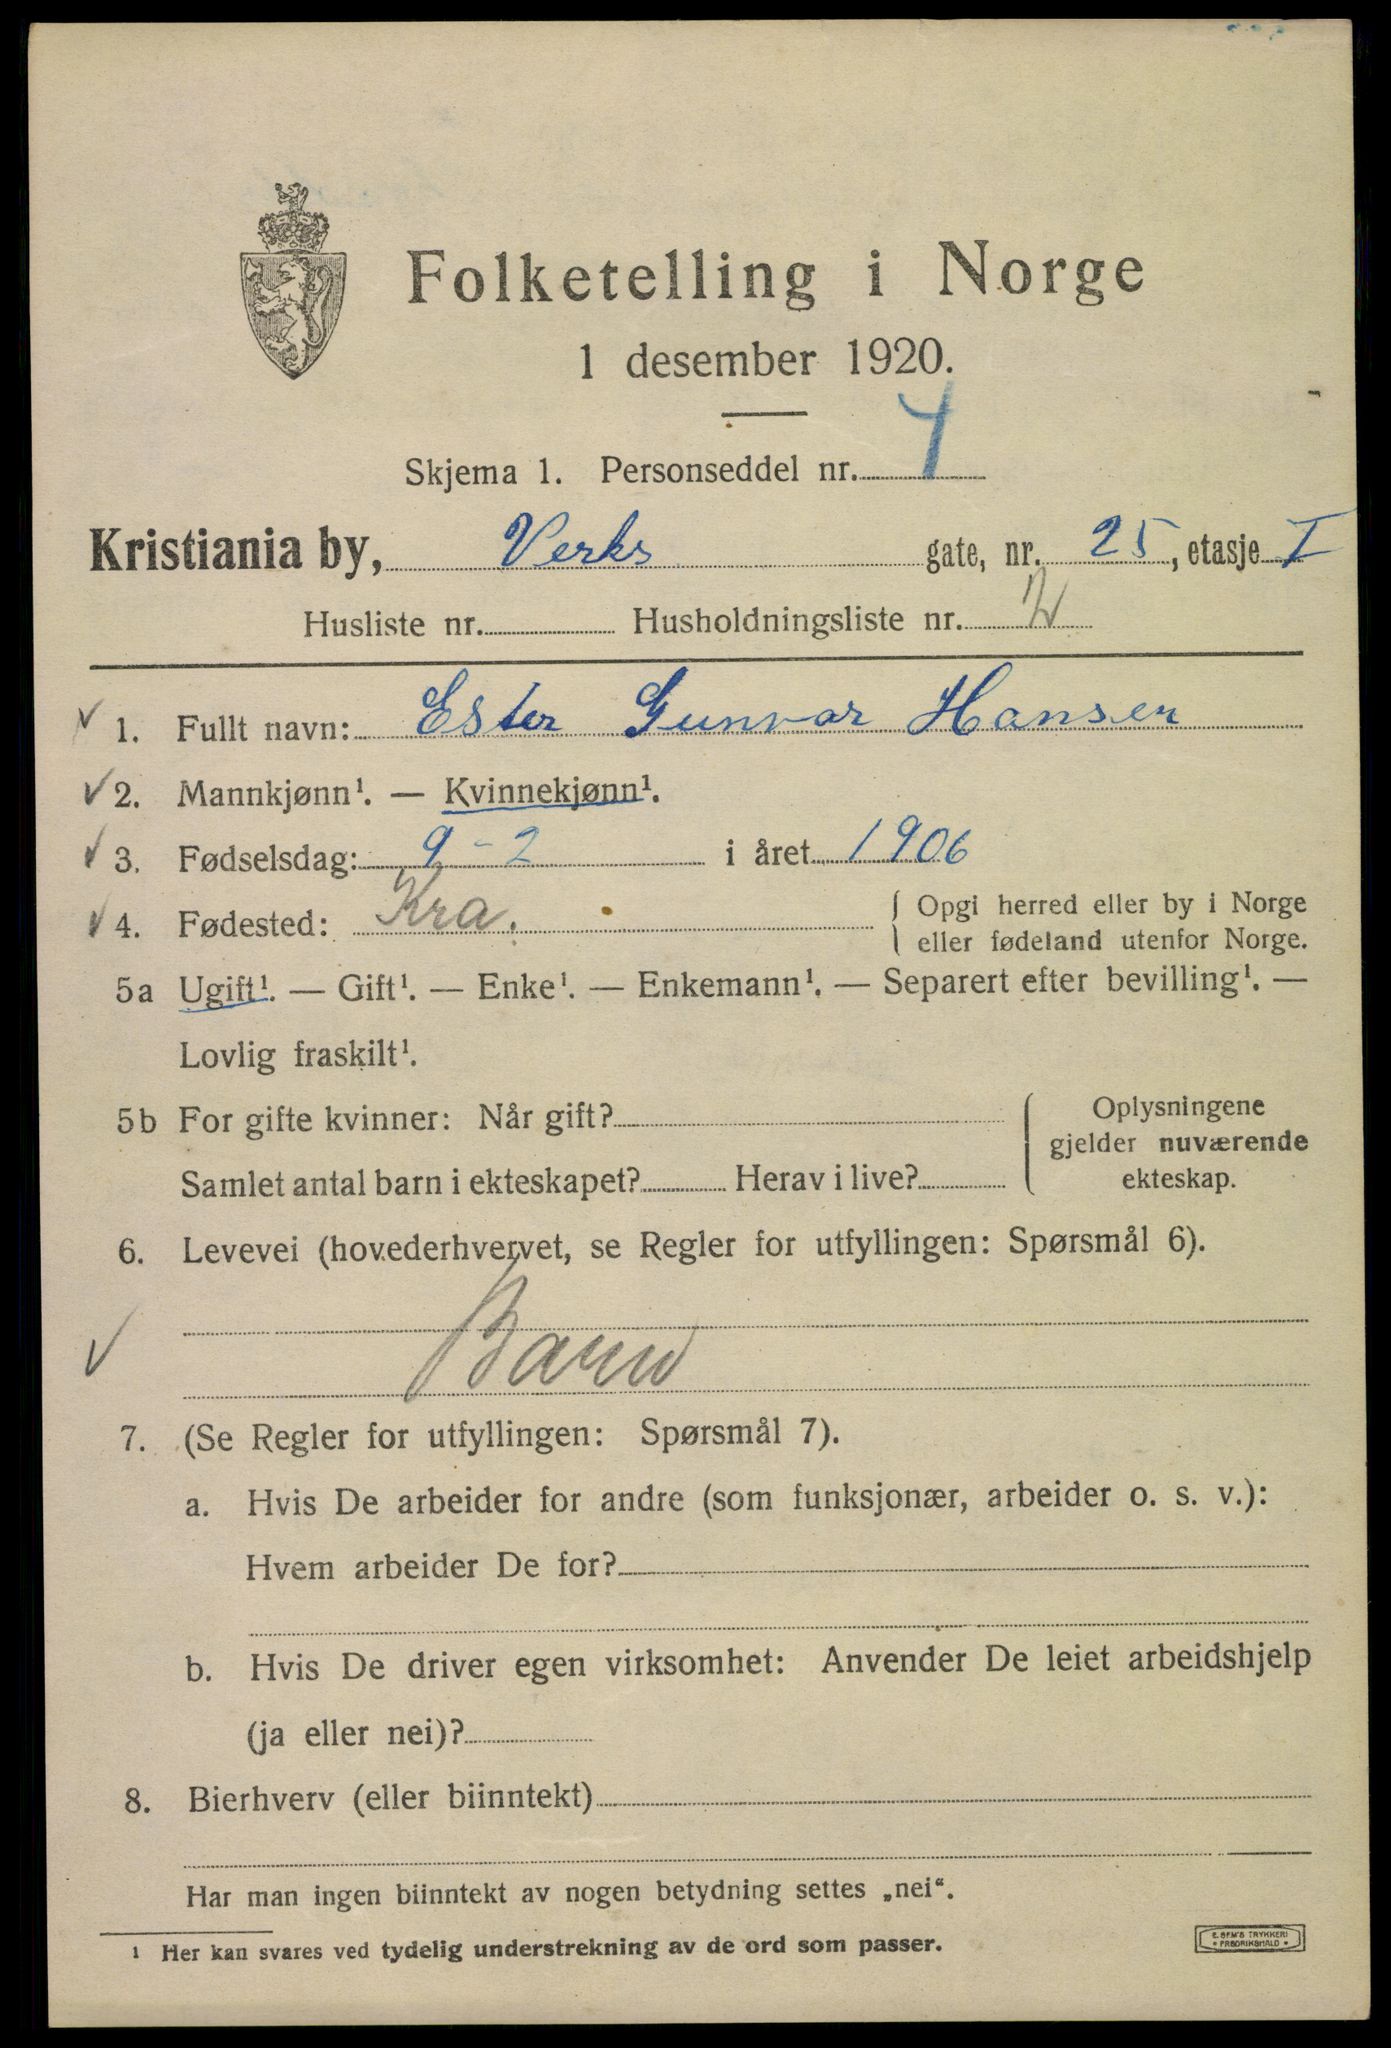 Folketelling i Norge
1 desember 1920.
Skjema 1. Personseddel nr. 4
Kristiania by, Verks gate, nr. 25, etasje I
Husliste nr. Husholdningsliste nr. 2
1. Fullt navn: Ester Gunvor Hansen
2. Mannkjønn¹. — Kvinnekjønn¹.
3. Fødselsdag: 9-2 i året 1906
4. Fødested: Kra. { Opgi herred eller by i Norge
eller fødeland utenfor Norge.
5a Ugift¹. — Gift¹. — Enke¹. — Enkemann¹. — Separert efter bevilling¹. —
Lovlig fraskilt¹.
5b For gifte kvinner: Når gift?
Samlet antal barn i ekteskapet? Herav i live?
Oplysningene
gjelder nuværende
ekteskap.
6. Levevei (hovederhvervet, se Regler for utfyllingen: Spørsmål 6).
Barn
7. (Se Regler for utfyllingen: Spørsmål 7).
a. Hvis De arbeider for andre (som funksjonær, arbeider o. s. v.):
Hvem arbeider De for?
b. Hvis De driver egen virksomhet: Anvender De leiet arbeidshjelp
(ja eller nei)?
8. Bierhverv (eller biinntekt)
Har man ingen biinntekt av nogen betydning settes „nei“.
¹ Her kan svares ved tydelig understrekning av de ord som passer.
E. SEM'S TRYKKERI
FREDRIKSHALD